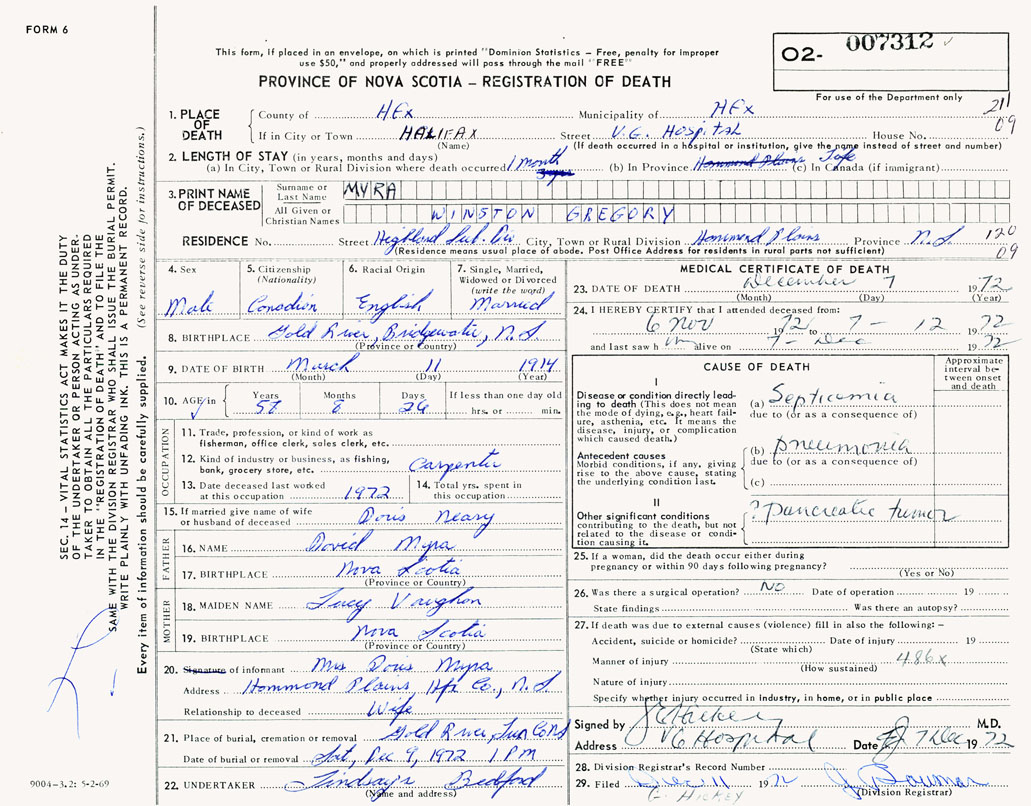 FORM 6
This form, if placed in an envelope, on which is printed "Dominion Statistics – Free, penalty for improper
use $50," and properly addressed will pass through the mail "FREE"
PROVINCE OF NOVA SCOTIA – REGISTRATION OF DEATH
O2- 007312
For use of the Department only
211
09
1. PLACE OF DEATH
County of HFx Municipality of HFx
If in City or Town HALIFAX Street V.G. Hospital House No.
(Name) (If death occurred in a hospital or institution, give the name instead of street and number)
2. LENGTH OF STAY (in years, months and days)
(a) In City, Town or Rural Division where death occurred 1 month (b) In Province Hammond Plains Life (c) In Canada (if immigrant)
3. PRINT NAME OF DECEASED
Surname or Last Name MYRA
All Given or Christian Names WINSTON GREGORY
RESIDENCE No. Street Highland Sub. Div City, Town or Rural Division Hammond Plains Province N.S.
(Residence means usual place of abode. Post Office Address for residents in rural parts not sufficient)
120
09
4. Sex Male
5. Citizenship (Nationality) Canadian
6. Racial Origin English
7. Single, Married, Widowed or Divorced (write the word) Married
8. BIRTHPLACE Gold River, Bridgewater, N.S.
(Province or Country)
9. DATE OF BIRTH March 11 1914
(Month) (Day) (Year)
10. AGE in Years 58 Months 8 Days 26 If less than one day old hrs. or min.
OCCUPATION
11. Trade, profession, or kind of work as
fisherman, office clerk, sales clerk, etc.
12. Kind of industry or business, as fishing,
bank, grocery store, etc. Carpenter
13. Date deceased last worked
at this occupation 1972
14. Total yrs. spent in
this occupation
15. If married give name of wife
or husband of deceased Doris Neary
FATHER
16. NAME David Myra
17. BIRTHPLACE Nova Scotia
(Province or Country)
MOTHER
18. MAIDEN NAME Lucy Vaughan
19. BIRTHPLACE Nova Scotia
(Province or Country)
20. Signature of informant Mrs Doris Myra
Address Hammond Plains, Hfx Co., N.S.
Relationship to deceased Wife
21. Place of burial, cremation or removal Gold River, Lun Co NS
Date of burial or removal Sat, Dec 9, 1972 1 PM
22. UNDERTAKER Lindsay's Bedford
(Name and address)
MEDICAL CERTIFICATE OF DEATH
23. DATE OF DEATH December 7 1972
(Month) (Day) (Year)
24. I HEREBY CERTIFY that I attended deceased from:
6 Nov 1972 to 7 – 12 1972
and last saw h im alive on 7 – Dec 1972
CAUSE OF DEATH
Approximate interval between onset and death
I
Disease or condition directly leading to death (This does not mean the mode of dying, e.g., heart failure, asthenia, etc. It means the disease, injury, or complication which caused death.)
(a) Septicemia
due to (or as a consequence of)
Antecedent causes
Morbid conditions, if any, giving rise to the above cause, stating the underlying condition last.
(b) pneumonia
due to (or as a consequence of)
(c)
II
Other significant conditions contributing to the death, but not related to the disease or condition causing it.
? Pancreatic tumor
25. If a woman, did the death occur either during
pregnancy or within 90 days following pregnancy?
(Yes or No)
26. Was there a surgical operation? NO Date of operation 19
State findings Was there an autopsy?
27. If death was due to external causes (violence) fill in also the following: –
Accident, suicide or homicide? Date of injury 19
(State which)
Manner of injury 486x
(How sustained)
Nature of injury
Specify whether injury occurred in industry, in home, or in public place
Signed by M.D.
Address VG Hospital Date 7 Dec 1972
28. Division Registrar's Record Number
29. Filed Dec 11 1972
(Division Registrar)
SEC. 14 – VITAL STATISTICS ACT MAKES IT THE DUTY
OF THE UNDERTAKER OR PERSON ACTING AS UNDERTAKER TO OBTAIN ALL THE PARTICULARS REQUIRED
IN THE "REGISTRATION OF DEATH" AND TO FILE THE
SAME WITH THE DIVISION REGISTRAR WHO SHALL ISSUE THE BURIAL PERMIT.
WRITE PLAINLY WITH UNFADING INK. THIS IS A PERMANENT RECORD.
Every item of information should be carefully supplied. (See reverse side for instructions.)
9004–3.2: 5-2-69